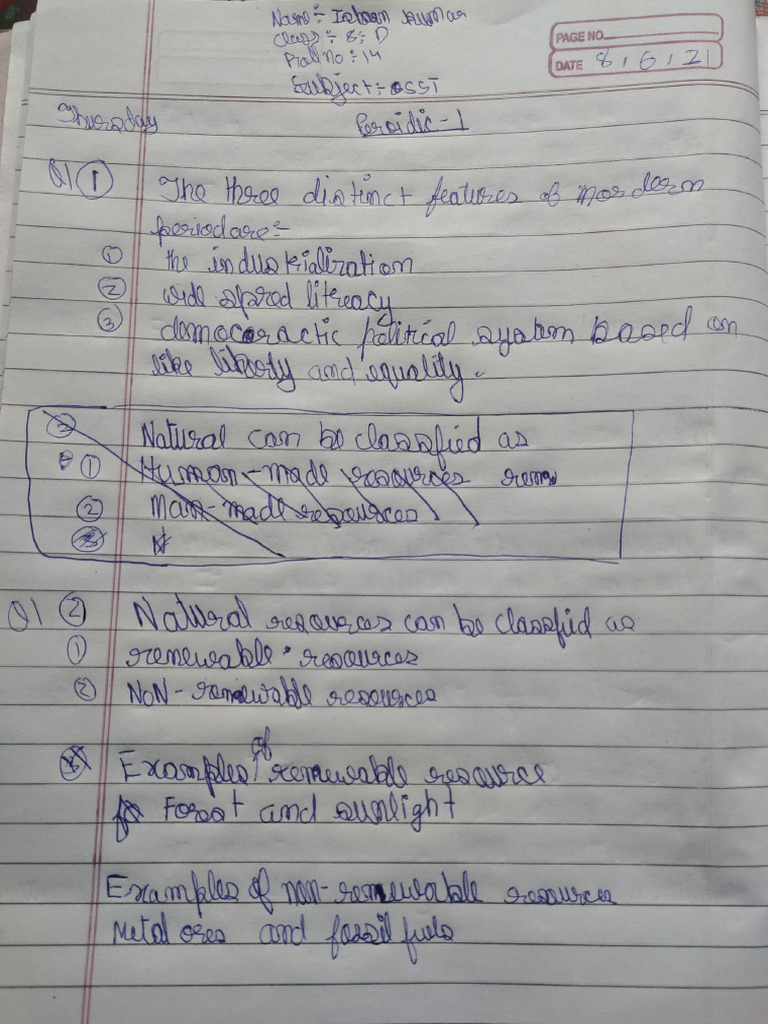 Name :- kumar
Class :- 8; D
Roll No :- 14
Subject :- SST
PAGE NO.
DATE 8, 6, 21
Thursday
Peroidic - 1
Q1 ① The three distinct features of mordern
period are :-
① the industrialization
② wide spred litreacy
③ democractic political system based on
like liberty and equality.
② Natural can be classified as
① Human-made resources
② Man-made resources
Q1 ② Natural resources can be classified as
① renewable resources
② NON-renewable resources
Examples of renewable resource
Forest and sunlight
Examples of non-renewable resources
Metal ores and fossil fuels